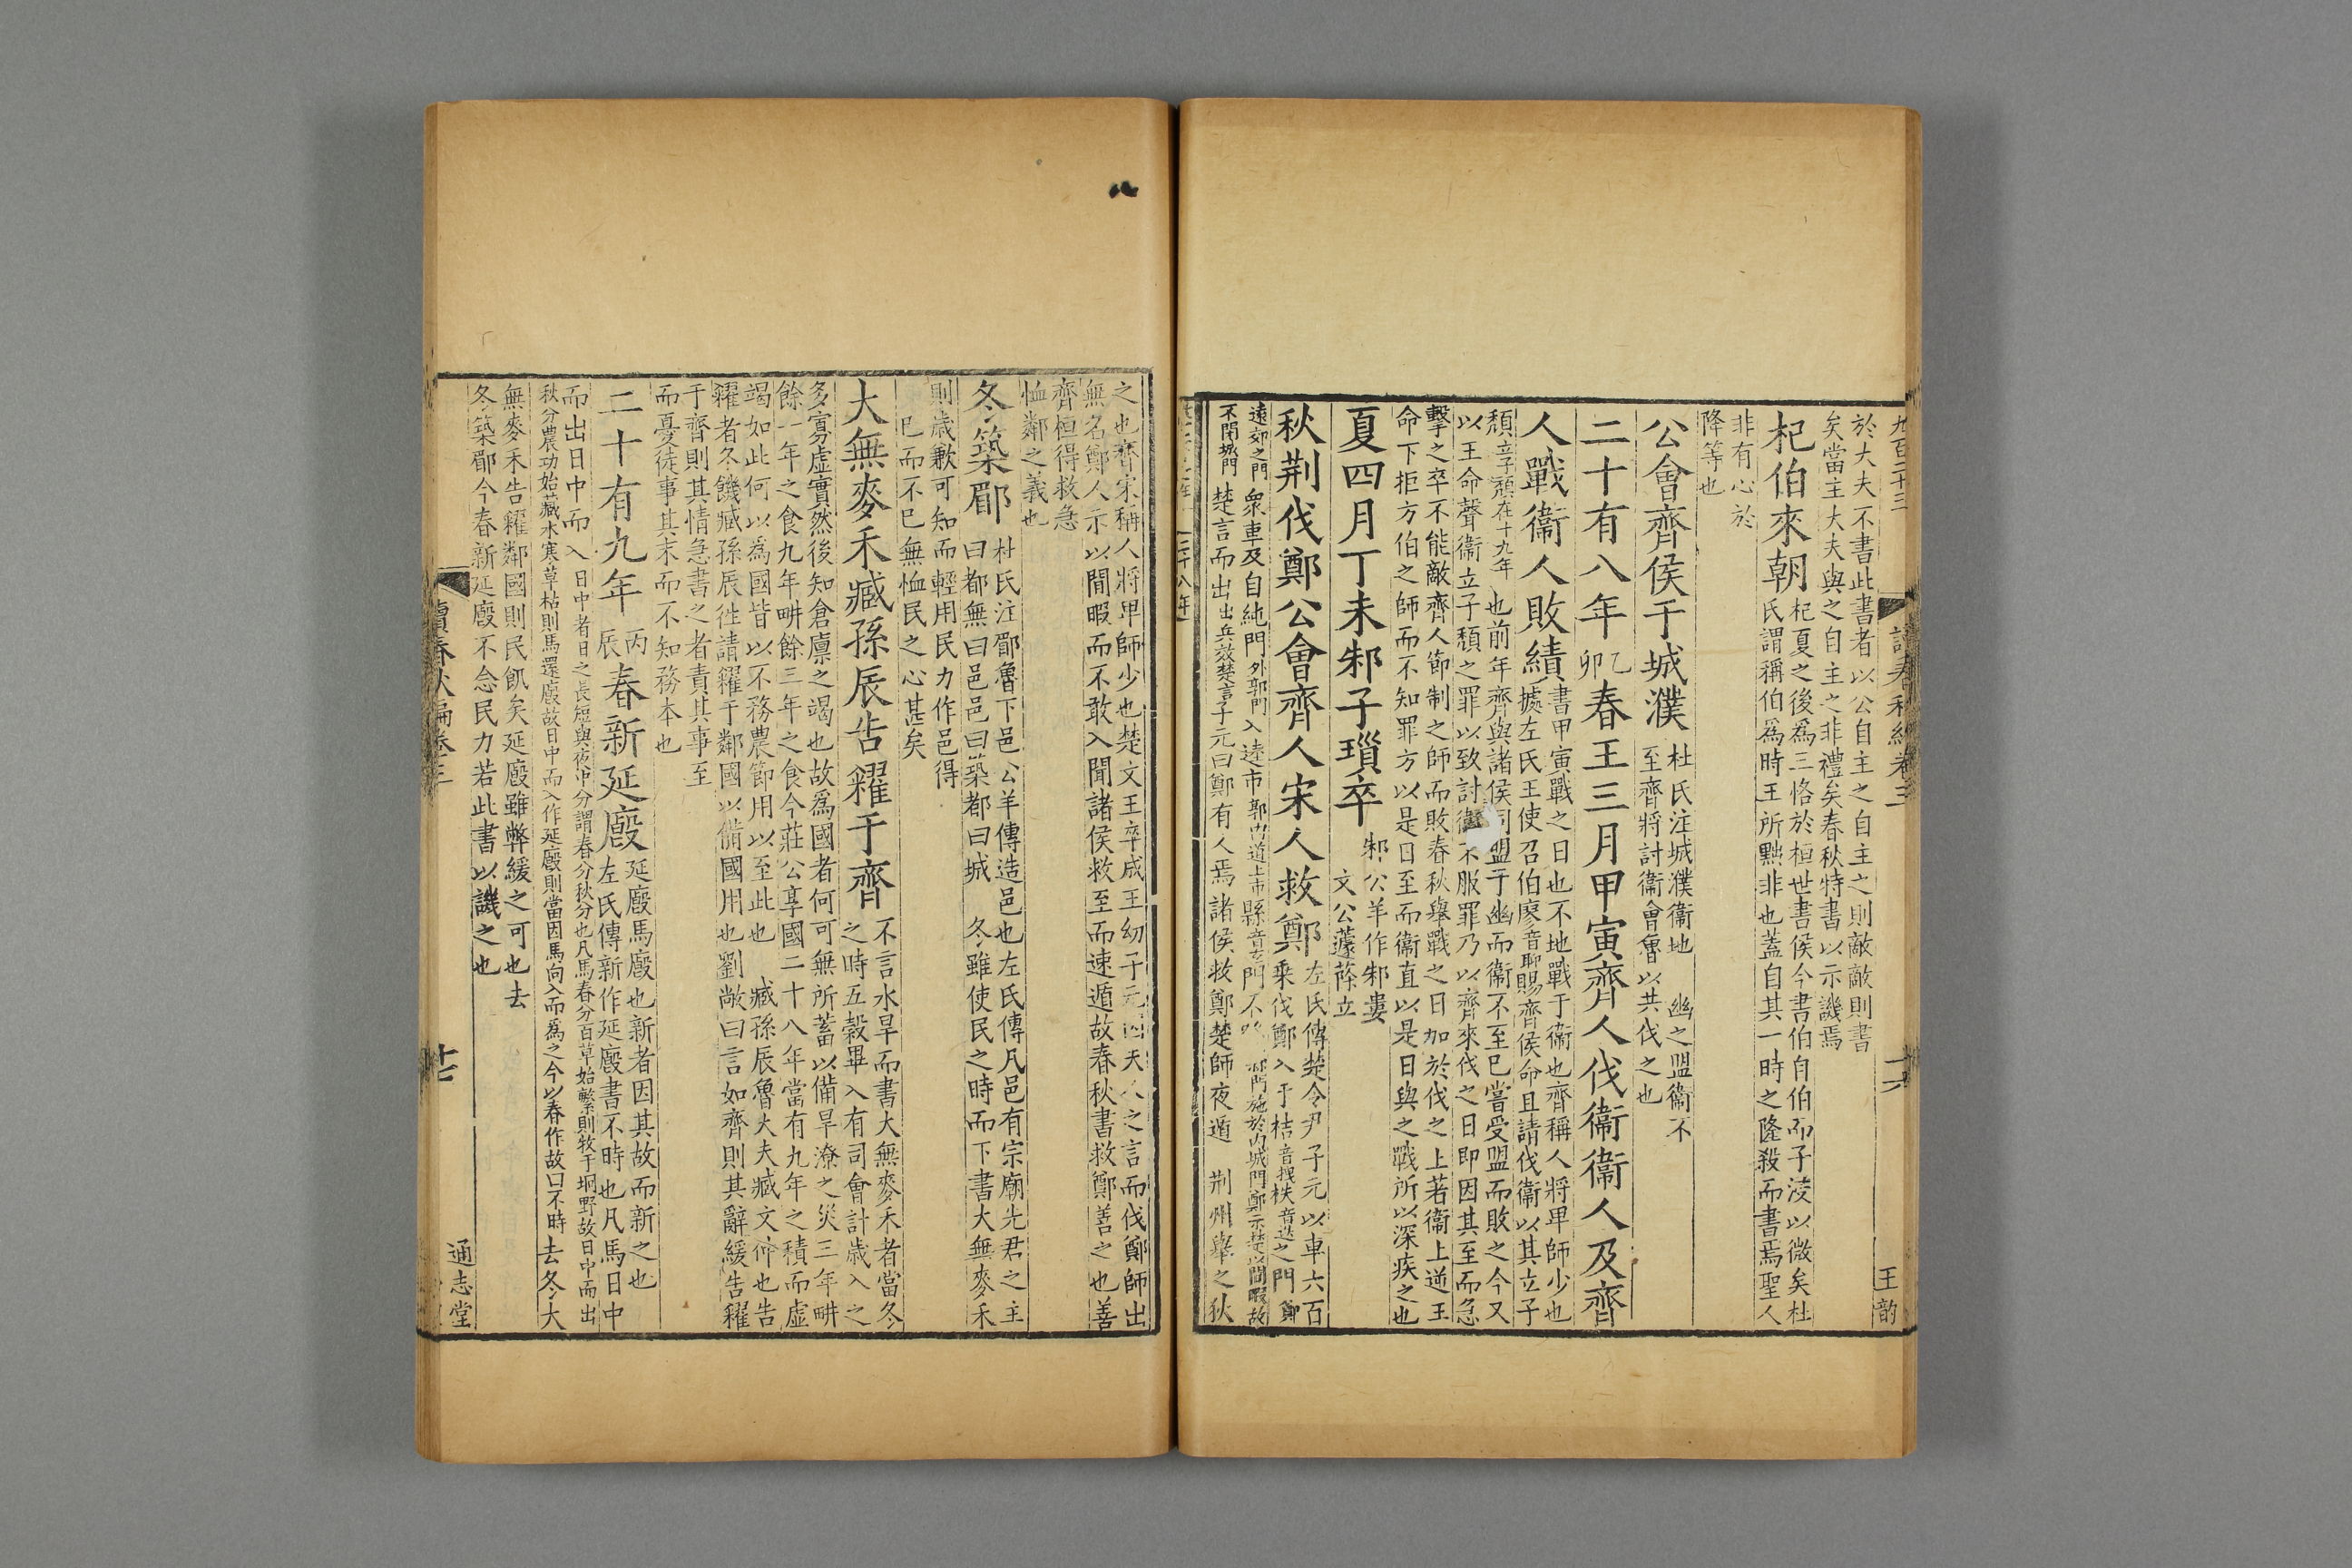 九百二十三
讀春秋編卷三
十六
王韵
於大夫不書此書者以公自主之自主之則敵敵則書
矣當主大夫與之自主之非禮矣春秋特書以示譏焉
杞伯來朝
杞夏之後爲三恪於桓世書侯今書伯自伯而子浸以微矣杜
氏謂稱伯爲時王所黜非也蓋自其一時之隆殺而書焉聖人
非有心於
降等也
公會齊侯于城濮
杜氏注城濮衞地 幽之盟衞不
至齊將討衞會魯以共伐之也
二十有八年乙卯春王三月甲寅齊人伐衞衞人及齊
人戰衞人敗績
書甲寅戰之日也不地戰于衞也齊稱人將卑師少也
據左氏王使召伯廖音聊賜齊侯命且請伐衞以其立子
頹立子頹在十九年也前年齊與諸侯同盟于幽而衞不至已嘗受盟而敗之今又
以王命聲衞立子頹之罪以致討衞不服罪乃以齊來伐之日即因其至而急
擊之卒不能敵齊人節制之師而敗春秋舉戰之日加於伐之上若衞上逆王
命下拒方伯之師而不知罪方以是日至而衞直以是日與之戰所以深疾之也
夏四月丁未邾子瑣卒
邾公羊作邾婁
文公蘧蒢立
秋荆伐鄭公會齊人宋人救鄭
左氏傳楚令尹子元以車六百
乘伐鄭入于桔音拮柣音迭之門鄭
遠郊之門衆車及自純門外郭門入逵市郭內道上市縣音玄門不
不閉城門楚言而出出兵效楚言子元曰鄭有人焉諸侯救鄭楚師夜遁 荆州舉之狄
之也齊宋稱人將卑師少也楚文王卒成王幼子元
之言而伐鄭師出
無名鄭人示以閒暇而不敢入聞諸侯救至而速遁故春秋書救鄭善之也善
齊桓得救急
恤鄰之義也
冬築郿
杜氏注郿魯下邑 公羊傳造邑也左氏傳凡邑有宗廟先君之主
曰都無曰邑邑曰築都曰城 冬雖使民之時而下書大無麥禾
則歲歉可知而輕用民力作邑得
已而不已無恤民之心甚矣
大無麥禾臧孫辰告糴于齊
不言水旱而書大無麥禾者當冬
之時五穀畢入有司會計歲入之
多寡虛實然後知倉廩之竭也故爲國者何可無所蓄以備旱潦之災三年畊
餘一年之食九年畊餘三年之食今莊公享國二十八年當有九年之積而虛
竭如此何以爲國皆以不務農節用以至此也 臧孫辰魯大夫臧文仲也告
糴者冬饑臧孫辰徃請糴于鄰國以備國用也劉敞曰言如齊則其辭緩告糴
于齊則其情急書之者責其事至
而憂徒事其末而不知務本也
二十有九年丙辰春新延廏
延廏馬廏也新者因其故而新之也
左氏傳新作延廏書不時也凡馬日中
而出日中而入日中者日之長短與夜中分謂春分秋分也凡馬春分百草始繁則牧于坰野故日中而出
秋分農功始藏水寒草枯則馬還廏故日中而入作延廏則當因馬向入而爲之今以春作故曰不時去冬大
無麥禾告糴鄰國則民飢矣延廏雖弊緩之可也去
冬築郿今春新延廏不念民力若此書以譏之也
讀春秋編卷三
十七
通志堂